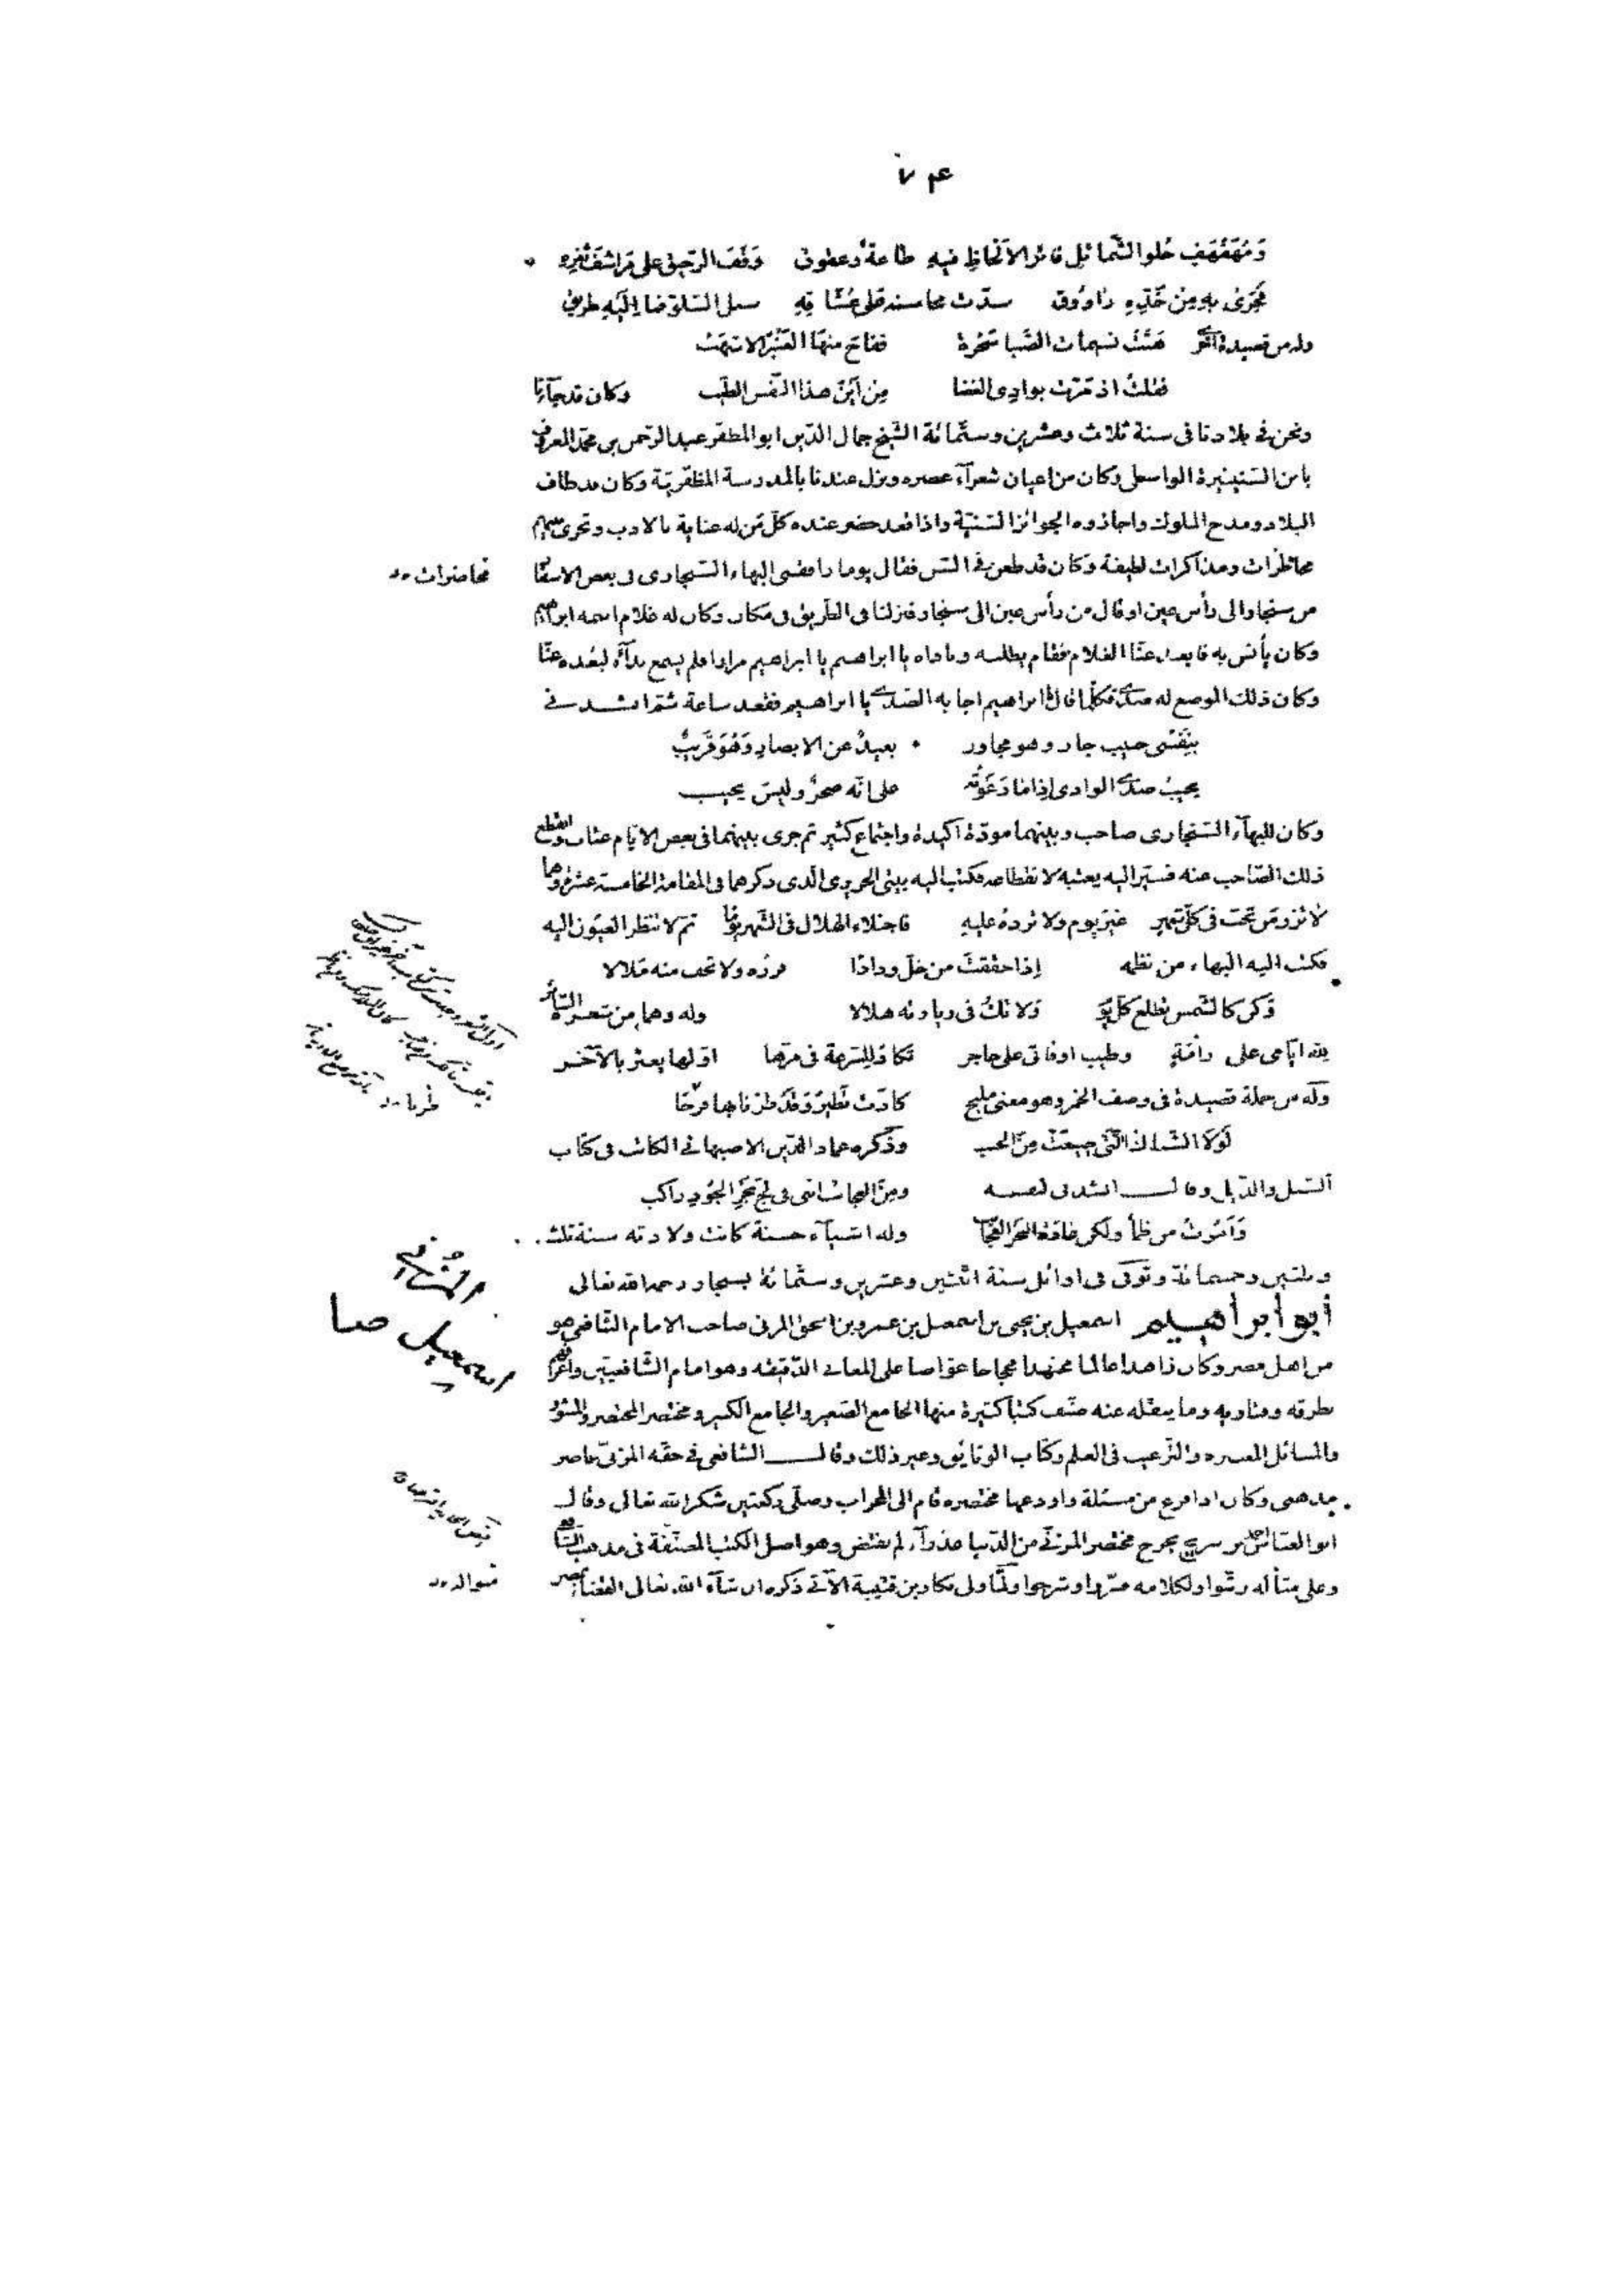 ٧٤
وَمُهَفْهَفٍ حُلو الشَّمائِلِ فاتر الأَلْحاظِ فيه طاعةٌ وعقوق وَقَفَ الرّحيق على مَراشفِ ثغره
فَجَرى به مِن خَدّه راووق سدّت محاسنه على عُشّاقه سبل السّلوّ فما إليه طريق
وله من قصيدة أخرى هَبَّتْ نسيمات الصَّبا سَحْرة ففاح منها العَنْبَر الاشهب
فقلتُ اذ مَرّت بوادى الغضا مِن أينَ هذا النَّفَس الطيّب وكان قد جآءنا
ونحن فى بلادنا فى سنة ثلاث وعشرين وستّمائة الشيخ جمال الدّين ابو المظفّر عبد الرّحمن بن محمّد المعروف
بابن السّنينيرة الواسطى وكان من اعيان شعرآء عصره ونزل عندنا بالمدرسة المظفّريّة وكان قد طاف
البلاد ومدح الملوك واجازوه الجوائز السّنيّة واذا قعد حضر عنده كلّ مَن له عناية بالادب وتجرى بينهم
محاظرات ومذاكرات لطيفة وكان قد طعن فى السّن فقال يوما رافقنى البهاء السّنجارى فى بعض الاسفار
محاضرات
من سنجار الى رأس عين او قال من رأس عين الى سنجار فنزلنا فى الطّريق فى مكان وكان له غلام اسمه ابراهيم
وكان يأنس به فابعد عنّا الغلام فقام يطلبه وناداه يا ابراهيم يا ابراهيم مرارا فلم يسمع ندآءه لبُعده عنّا
وكان ذلك الموضع له صدى فكلّما قال يا ابراهيم اجابه الصّدى يا ابراهيم فقعد ساعة ثمّ انشدنى
بنَفْسى حبيب جار وهو مجاور بعيدٌ عن الابصار وَهْوَ قَريبُ
يجيبُ صدى الوادى إذا ما دَعَوْتُه على انّه صخرٌ وليسَ يجيب
وكان للبهآء السّنجارى صاحب وبينهما مودّة اكيدة واجتماع كثير ثم جرى بينهما فى بعض الايّام عتاب وانقطع
ذلك الصّاحب عنه فسيّر اليه يعتبه لانقطاعه فكتب اليه بيتى الحريرى الّذى ذكرهما فى المقامة الخامسة عشرة وهما
لا تزر مَن تحبّ فى كلّ شهر غيرَ يوم ولا تزدهُ عليهِ فاجتلاء الهلال فى الشّهر يوم ثم لا تنظر العيون اليه
فكتب اليه البهاء من نظمه إذا حققتَ من خلّ ودادًا فزره ولا تخف منه مَلالا
وَكن كالشّمس تطلع كلّ يوم وَلا تكُ فى زيارته هلالا وله وهما من شعره السّائر
لله ايّامى على رامَةٍ وطيب اوقاتى على حاجر تكاد للسّرعة فى مرّها اوّلها يعثر بالآخر
وله من جملة قصيدة فى وصف الخمر وهو معنى مليح كادَت تطير وَقَدْ طرنا بها فرحًا
لَولا الشّباك الّتى صيغَتْ مِنَ الحبب وذَكره عماد الدّين الاصبهانى الكاتب فى كتاب
السّيل والذّيل وقال انشدنى لنفسه ومِنَ العجائب انّنى فى لجّ بَحْرِ الجُودِ راكب
وَأَمُوتُ من ظمأ ولكن عادَة البَحْر العَجائب وله اشيآء حسنة كانت ولادته سنة ثلث
وثلثين وخمسمائة وتوفّى فى اوائل سنة اثنتين وعشرين وستّمائة بسنجار رحمه الله تعالى
المُزَنى اسمعيل صا
أبو أبراهيم اسمعيل بن يحيى بن اسمعيل بن عمرو بن اسحق المزنى صاحب الامام الشّافعى هو
من اهل مصر وكان زاهدا عالما مجتهدا محجاجا غوّاصا على المعانى الدّقيقه وهو امام الشّافعيّين واعرفهم
بطرقه وفتاويه وما ينقله عنه صنّف كتبًا كثيرة منها الجامع الصّغير والجامع الكبير ومختصر المختصر والمنثور
والمسائل المعتبره والتّرغيب فى العلم وكتاب الوثائق وغير ذلك وقال الشّافعى فى حقّه المزنىّ ناصر
مذهبى وكان اذا فرغ من مسئلة واودعها مختصره قام الى المحراب وصلّى ركعتين شكرا لله تعالى وقال
ابو العبّاس احمد بن سريج يخرج مختصر المزنّى من الدّنيا عذرآء لم يفتض وهو اصل الكتب المصنّفة فى مذهب الشّافعى
وعلى مثاله رتّبوا ولكلامه فسّروا وشرحوا ولمّا ولى بكار بن قتيبة الآتى ذكره ان شآء الله تعالى القضآء بمصر